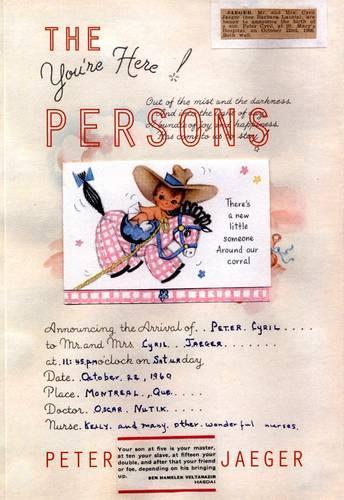 JAEGER. Mr. and Mrs. Cyril
Jaeger (nee Barbara Laurie), are
happy to announce the birth of
a son, Peter Cyril, at St. Mary's
Hospital, on October 22nd, 1960.
Both well.
THE
You're Here!
Out of the mist and the darkness
PERSONS
bundle of joy and happiness,
come to us to stay.
There's
a new
little
someone
Around our
corral
Announcing the Arrival of.. PETER. CYRIL.....
to Mr. and Mrs. CYRIL.. JAEGER.......
at 11:45 PM o'clock on Saturday
Date. October. 22, 1960
Place. MONTREAL, Que....
Doctor. OSCAR. NUTIK.....
Nurse. KELLY. and many. other. wonderful nurses.
Your son at five is your master,
at ten your slave, at fifteen your
double, and after that your friend
or foe, depending on his bringing
up.
BEN HAMELEK VELTANAZIR
HASDAI
PETER JAEGER